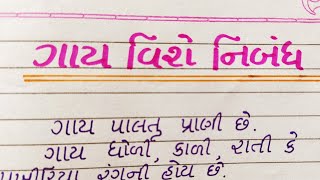 ગાય વિશે નિબંધ
ગાય પાલતુ પ્રાણી છે.
ગાય ધોળી, કાળી, રાતી કે
રંગની હોય છે.